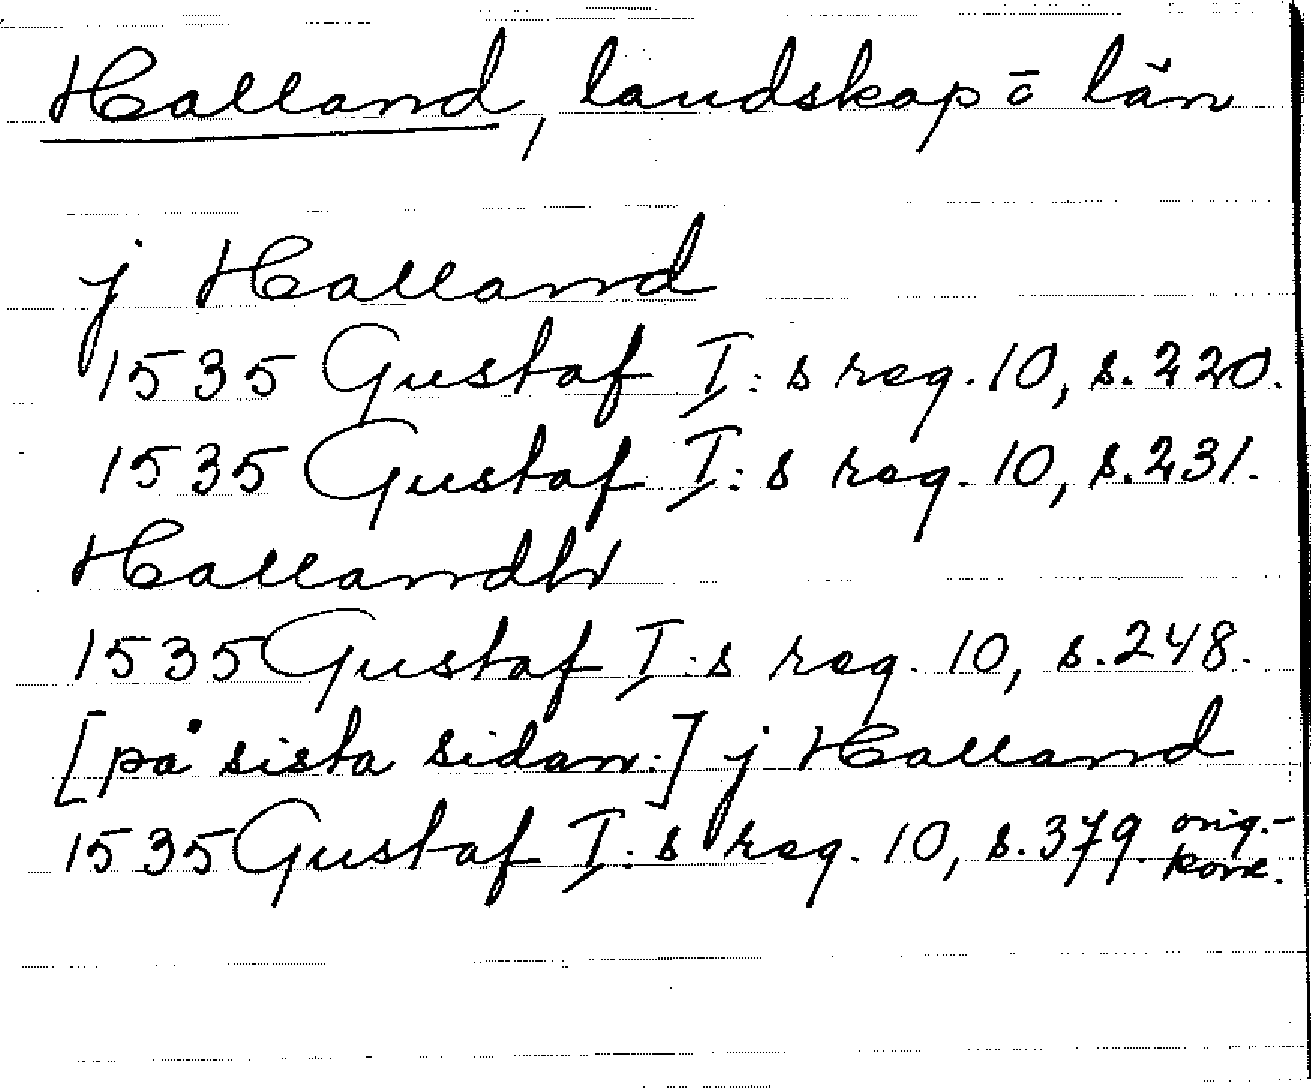 Halland, landskap o län
j Halland
1535 Gustaf I:s reg. 10, s. 220.
1535 Gustaf I:s reg. 10, s. 231.
Hallandh
1535 Gustaf I:s reg. 10, s. 248.
[på sista sidan:] j Halland
1535 Gustaf I:s reg. 10, s. 379. orig.-
konc.